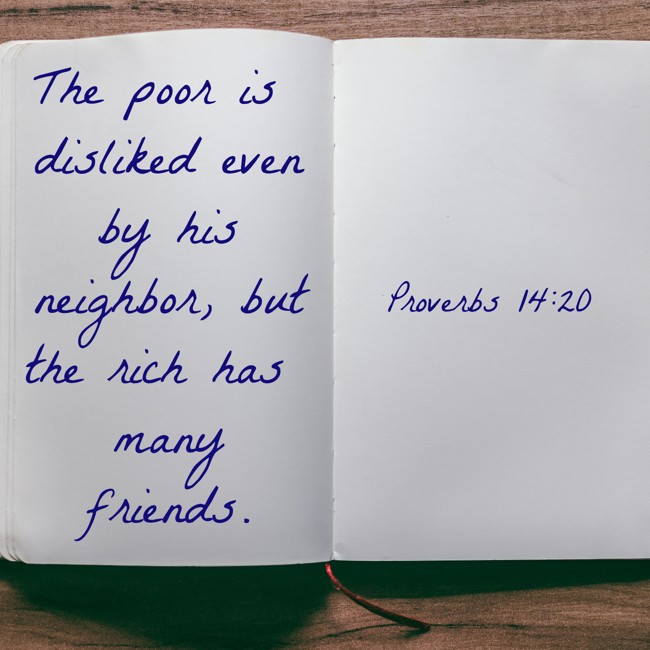 The poor is
disliked even
by his
neighbor, but
the rich has
many
friends.
Proverbs 14:20